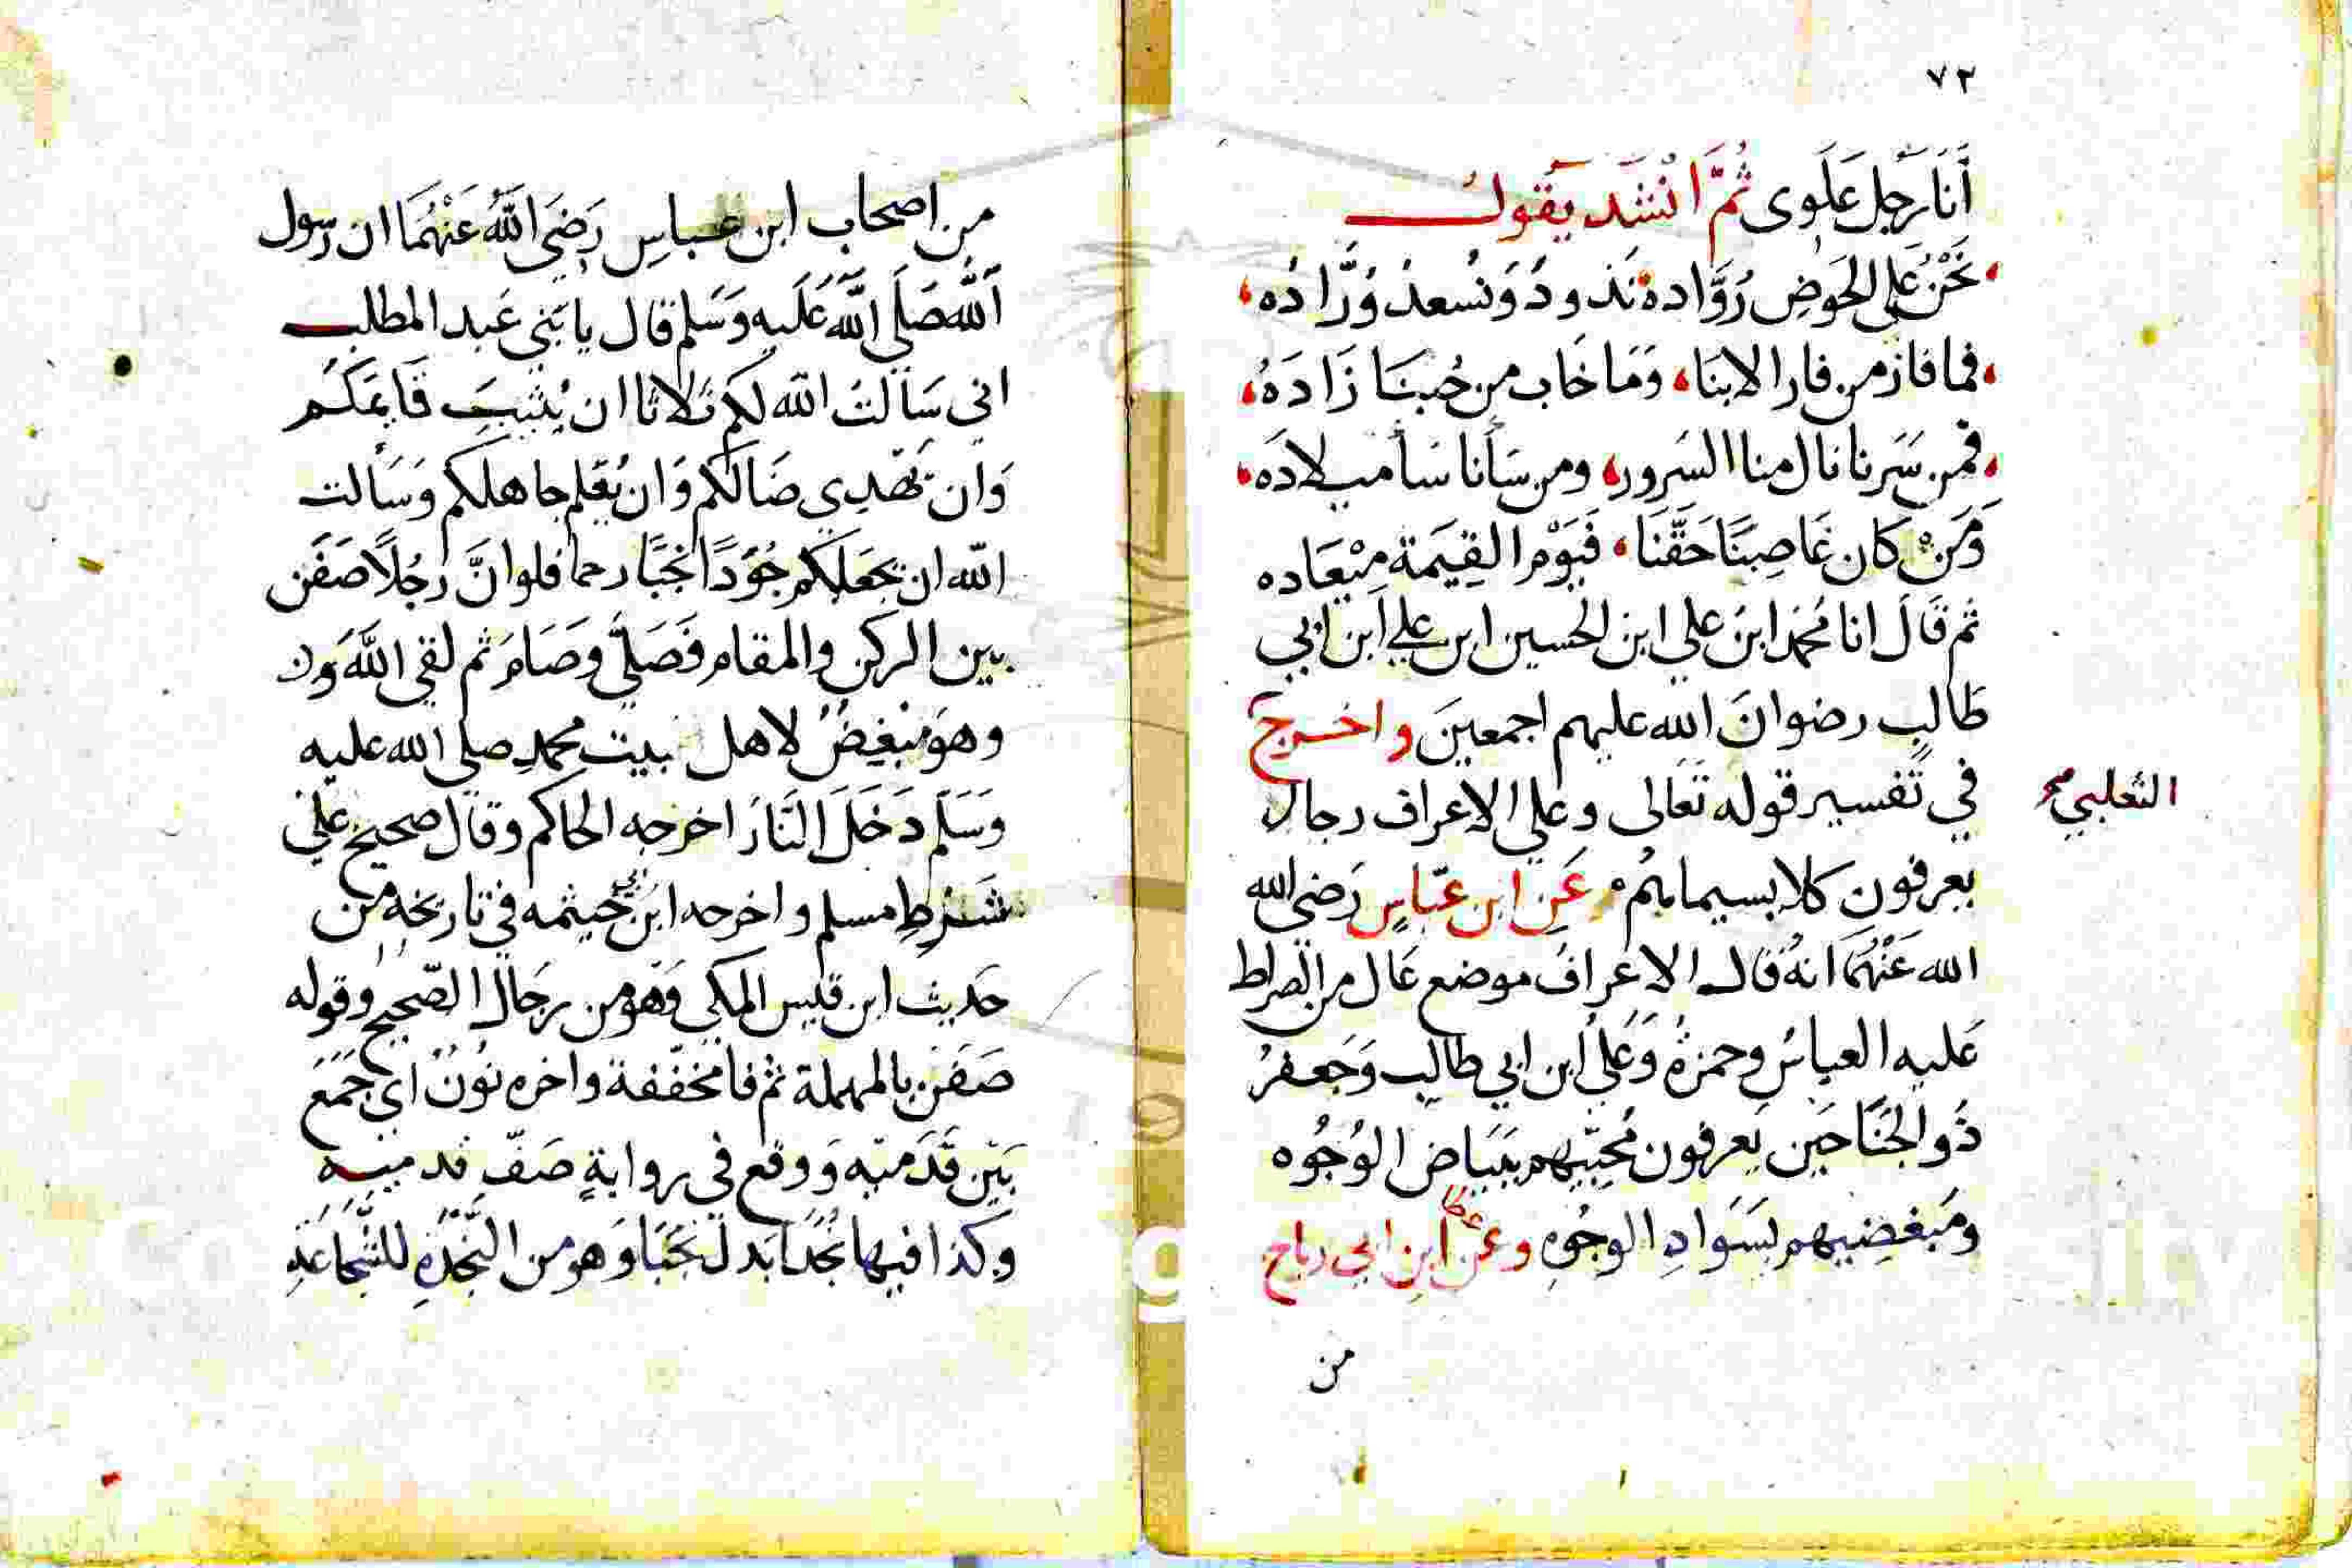 ٧٢
أَنَا رَجل عَلَوى ثُمَّ انْشَد يَقُول
نَحْنُ عَلى الحَوضِ رُوَّاده نَذودُ وَنُسعدُ وُرَّادُه
فما فاز من فاز الا بنَا وَمَا خَاب من حُبنَا زَادَهُ
فمن سَرنا نال منا السَرور ومن سَأنا سَأ ميلادَه
وَمَنْ كان غَاصِبنَا حَقَّنَا فَيَوْم القِيَمَة مِيْعَاده
ثم قَالَ انا مُحَمد ابنُ علي ابن الحسين ابن علي ابن ابي
طَالبِ رضوانَ الله عليهم اجمعينَ واخرج
الثعلبي صح
في تَفسير قوله تَعَالى وعلى الاعراف رجال
يعرفون كلا بسيماهُم عَنِ ابن عبّاسٍ رَضي الله
الله عَنْهُمَا انهُ قال الاعرافُ موضع عَال من الصِراط
عَليه العباسُ وحمزةُ وَعَلى ابن ابي طالب وَجَعفرُ
ذَو الجَنَاحَين يَعرفون مُحبّيهم ببَيَاض الوُجُوه
ومَبغضيهم بسَوَادِ الوجُوهِ وعن عطا ابن ابي رباح
من
من اصحاب ابن عباسِ رَضيَ اللهُ عَنْهُمَا ان رسول
اللهِ صَلَى اللهُ عَلَيه وَسَلم قال يا بَني عَبد المطلب
اني سَالتُ الله لكم ثلاثا ان يُثبتَ قَايمَكُم
وَان يَهْدِي ضَالكم وَان يُعَلم جاهلكم وَسَألت
الله ان يجعَلكم جُوَدًا نُجَبًا رحما فلو انَّ رجُلًا صَفَن
بين الركن والمقام فَصَلَّى وصَامَ ثم لقى اللهَ
وهوَ مُبغِضُ لاهل بيت محمدٍ صلى الله عليه
وَسَلَم دَخَلَ النَّارَ اخرجه الحاكم وقال صحيح على
شَرْطِ مسلم واخرجه ابن ابي خيثمه في تاريخه من
حَديث ابن قيس المكي وَهو من رجَال الصّحيح وقوله
صَفَن بالمهملة ثم فا مخففة واخره نوُن اي جَمَعَ
بَيْن قَدَميْه وَوقع في روايةٍ صَفّ قدميه
وكذا فيها نُجُدًا بَدل نُجَبَا وَهو من النَّجْدَةِ للشُّجَاعَةِ